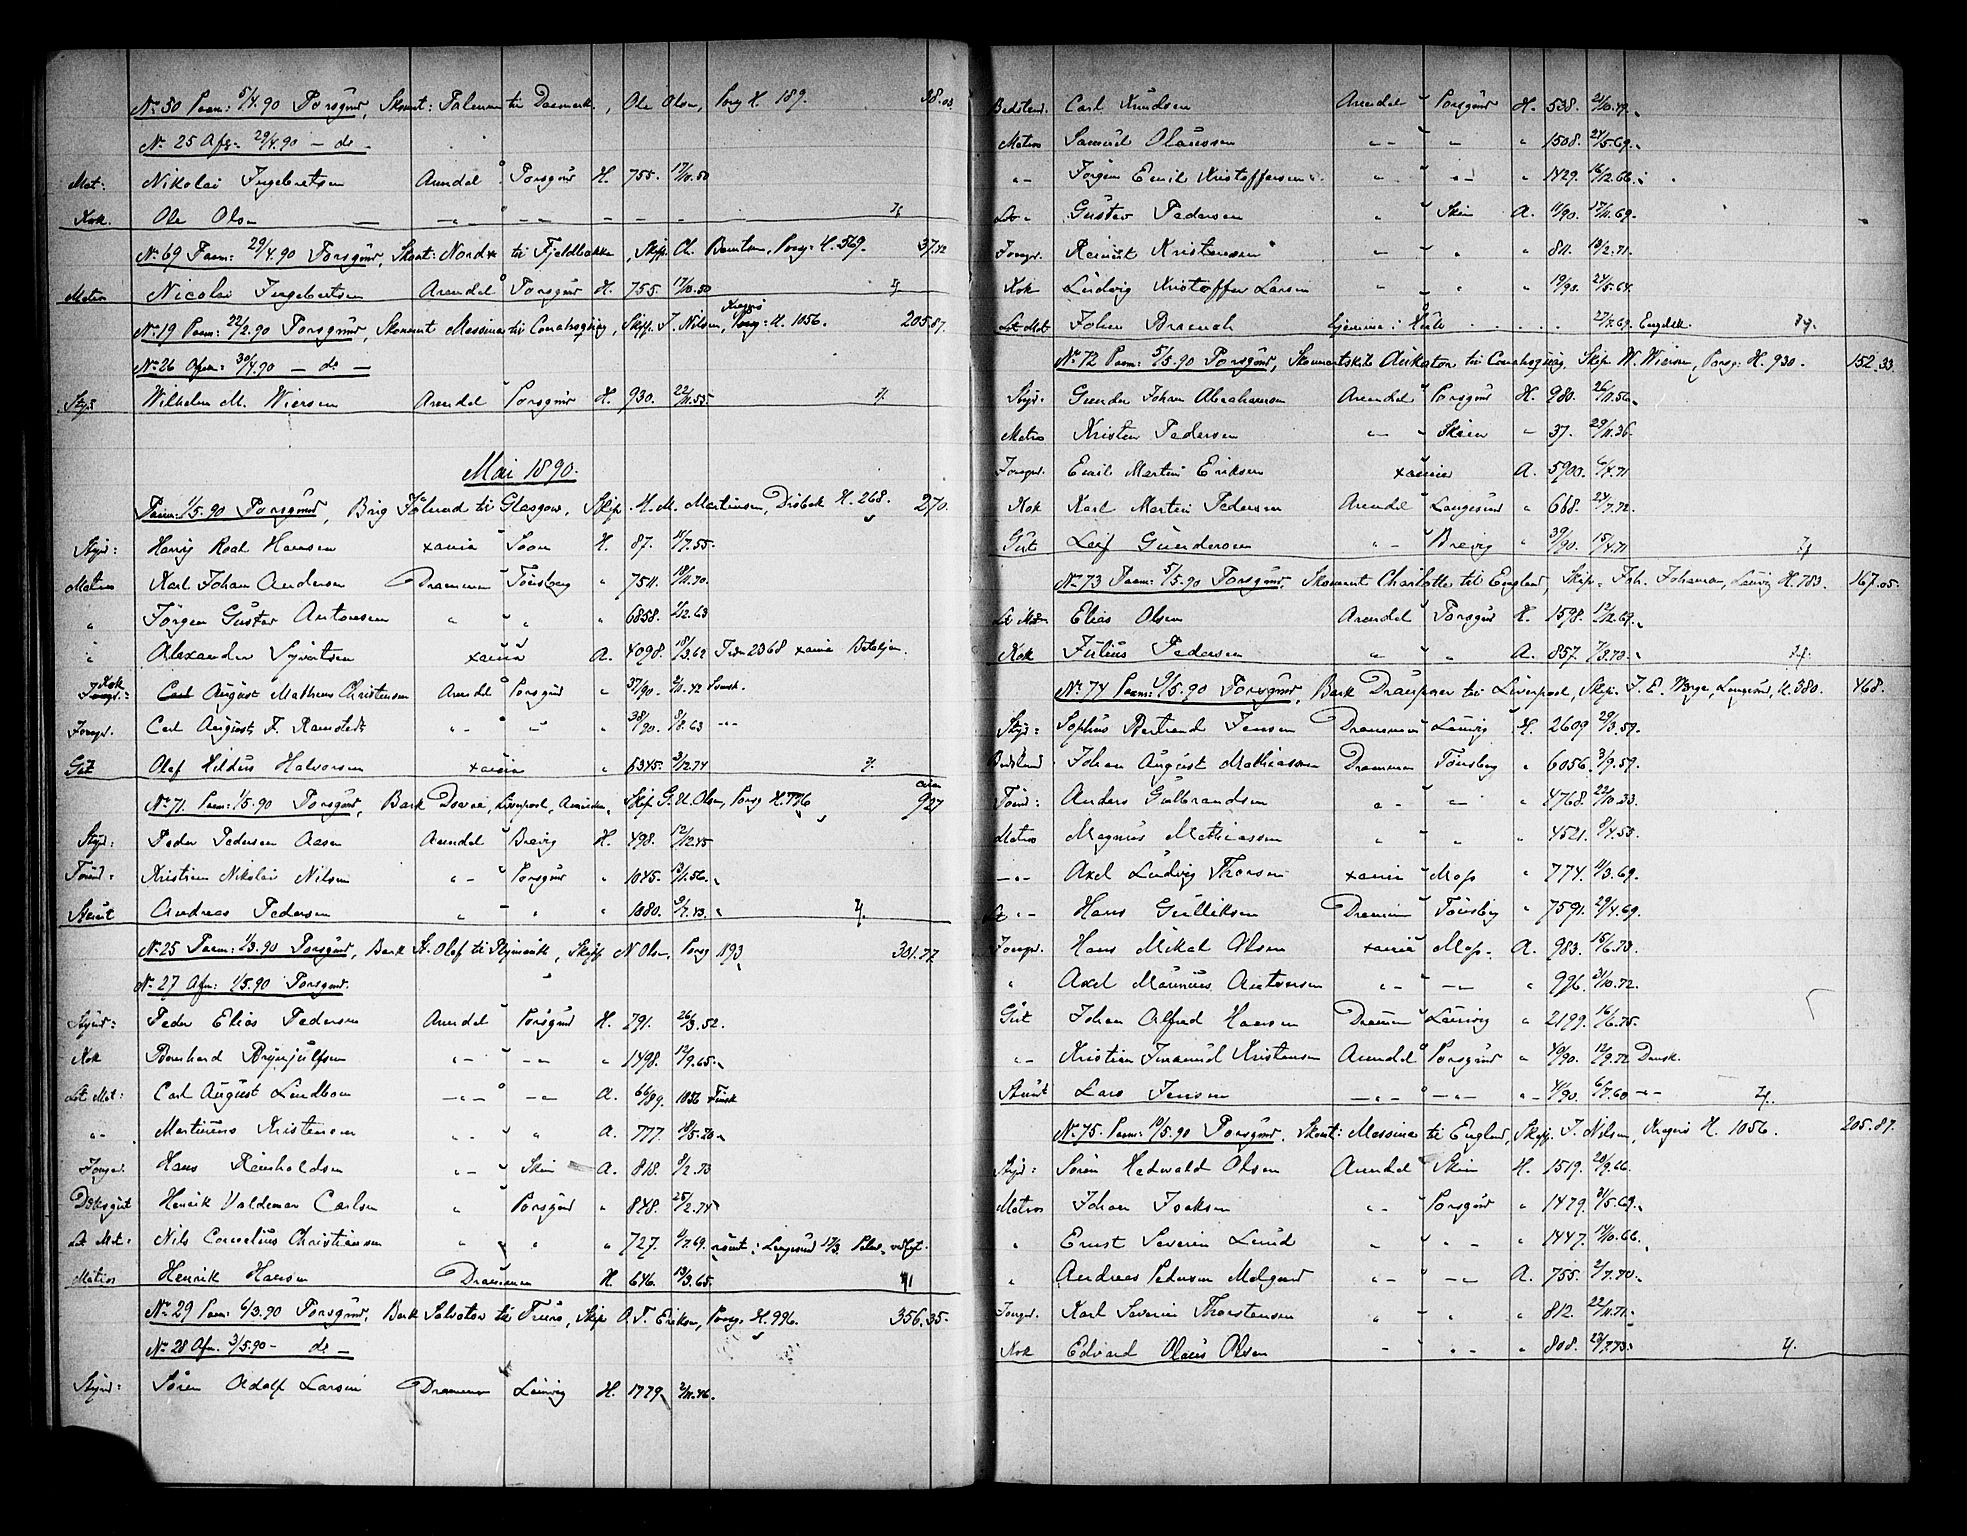 No 50 Paam: 5/4.90 Porsgrund, Skonnt: Palmen til Danmark, Ole Olsen, Porsg H. 189. 38.03
No 25 Afm 29/4.90 — do —
Mat: Nikolai Ingebretsen Arendal Porsgrund H. 755. 17/10.50
Kok. Ole Olsen — „ — — „ — — — — —
No 69 Paam: 29/4.90 Porsgrund, Skont: til Fjeldbakka, Skipp. Ch. Berntsen, Porsg: H. 569. 37.12
Matros Nicolai Ingebertsen Arendal Porsgrund H. 755. 17/10.50
No 19 Paam: 22/2.90 Porsgrund, Skonnt Messina til Connahsquay, Skipp. J. Nilsen, Kragerö H. 1056. 205.87.
No 26 Afm: 30/4.90 — do —
Styr Wilhelm M. Wiersen Arendal Porsgrund H. 930. 22/11.55.
Mai 1890.
Paam: 1/5.90 Porsgrund, Brig til Glasgow, Skip. H. M. Martinsen, Dröbak H. 268. 270.
Styr: Hansen xania Soon H. 87. 15/7.55.
Matros Karl Johan Andersen Drammen Tönsberg „ 7511. 19/11.70.
„ Jörgen Gustav Antonsen „ „ „ 6858. 2/12.63
„ Alexander Syvertsen xania A. 4098. 18/3.62 2368 xania Bataljon.
Kok Carl August Matheus Christensen Arendal Porsgrund „ 37/90. 2/11.42 Svensk.
Jungm. Carl August F. Ramstedt „ - „ - „ 38/90. 8/8.63 „ -
Gut Olaf Hildus Halvorsen xania „ 6345. 3/12.74
No 71. Paam: 1/5.90 Porsgrund, Bark Liverpool, Skip G. H. Olsen, Porsg H. 776 927
Styr: Peder Pedersen Aasen Arendal Brevig H. 498. 12/12.45
Tömm. Kristian Nikolai Nilsen „ - Porsgrund „ 1045. 13/1.56.
Stuert Andreas Pedersen „ „ „ 1080. 9/7.43.
No 25 Paam: 1/3.90 Porsgrund, Bark St. Olaf til, Skip N Olsen, Porsg 193 301.77
No 27 Afm: 1/5.90 Porsgrund.
Styrm: Peder Elias Pedersen Arendal Porsgrund H. 791. 26/3.52.
Kok Bernhard Brynjulfsen „ - „ - „ 1498. 12/9.65.
Let Mat: Carl August Lindbom — „ — — „ — A. 66/89. 1856 Finsk
„ - Martinius Kristensen „ - „ A. 777. 18/5.70
Jungm. Hans Reinholdsen „ - Skien A. 818. 8/2.73
Dæksgut Henrik Valdemar Carlsen „ Porsgrund „ 848. 25/2.74
Let Mat: Nils Cornelius Christiansen „ „ „ 727. 11/7.69. römt i Langesund 17/3
Matros Henrik Hansen Drammen H. 646. 13/3.65.
No 29 Paam: 6/3.90 Porsgrund, Bark Salvator til Truro, Skip O. T. Eriksen, Porsg. H. 996. 356.35.
No 28 Afm. 3/5.90 — do —
Styrm: Sören Adolf Larsen Drammen Laurvig H. 1779. 2/11.46.
Bedstmd. Carl Knudsen Arendal Porsgrund H. 538. 21/10.49.
Matros Samuel Olaussen „ - „ „ 1508. 24/5.69.
„ - Jörgen Emil Kristoffersen „ „ - „ 1429. 16/12.66.
Let „ Gustav Pedersen „ Skien A. 11/90. 17/11.69.
Jungm. Reinert Kristensen „ „ „ 811. 19/2.71.
Kok Ludvig Kristoffer Larsen „ „ „ 19/90. 24/5.64.
Let Mat John Branch hjemme i Hull . . . . 27/7.69. Engelsk.
No 72 Paam: 5/5.90 Porsgrund, Skonnertskib til Connahsquay, Skip. W. Wiersen, Porsg: H. 930. 152.33
Styr: Gunder Johan Abrahamsen Arendal Porsgrund H. 980. 26/11.56.
Matros Kristen Pedersen „ - Skien „ 37. 29/11.36.
Jungm. Emil Martin Eriksen xania A. 5900. 6/4.71
Kok Karl Martin Pedersen Arendal Langesund „ 668. 24/7.72.
Gut Leif Gundersen „ - Brevig „ 39/90. 15/4.71
No 73 Paam: 5/5.90 Porsgrund, Skonnert Charlotte til England, Skip. Joh. Johansen, Laurvig H. 783. 167.05.
Let Mat Elias Olsen Arendal Porsgrund H. 1598. 12/12.69.
Kok Julius Pedersen „ „ A. 857. 7/3.73.
No 74 Paam: 9/5.90 Porsgrund, Bark Draupner til Liverpool, Skip. J. E. Langesund, H. 380. 468.
Styr: Sophus Bertrand Jensen Drammen Laurvig H. 2609 29/3.57.
Bedstmd Johan August Mathiassen Drammen Tönsberg „ 6056. 3/9.59.
Tömm: Anders Gulbrandsen „ - „ - „ 4768. 22/10.33.
Matros Magnus Mathiassen „ „ „ 4521. 8/4.53.
— „ - Axel Ludvig Thorsen xania Moss „ 774. 11/3.69.
Let „ - Hans Gulliksen Drammen Tönsberg „ 7591. 29/4.69.
Jungm. Hans Mikal Olsen xania Moss. A. 983. 15/6.73.
„ Axel Marinius Antonsen „ - — „ - „ 996. 31/10.72.
Gut Johan Alfred Hansen Drammen Laurvig „ 2199. 16/6.75.
„ - Kristian Imanuel Kristensen Arendal Porsgrund „ 40/90. 12/9.72 Dansk.
Stuert Lars Jensen — „ - — „ - „ - 41/90. 6/7.60 — „ -
No 75. Paam: 10/5.90 Porsgrund, Skonnt: Messina til England, Skipp. J. Nilsen, Kragerö H. 1056. 205.87.
Styr: Sören Hedwald Olsen Arendal Skien H. 1519. 20/9.66.
Matros Johan Isaksen „ - Porsgrund „ 1479. 31/5.69.
„ Ernst Severin Lund „ „ - „ 1447. 14/10.66.
„ Andreas Pedersen Melgaard „ - — „ - A. 755. 2/7.70.
Jungm. Karl Severin Thorstensen „ „ „ 812. 22/11.71.
Kok Edvard Olaus Olsen „ „ - „ 808. 23/7.73.